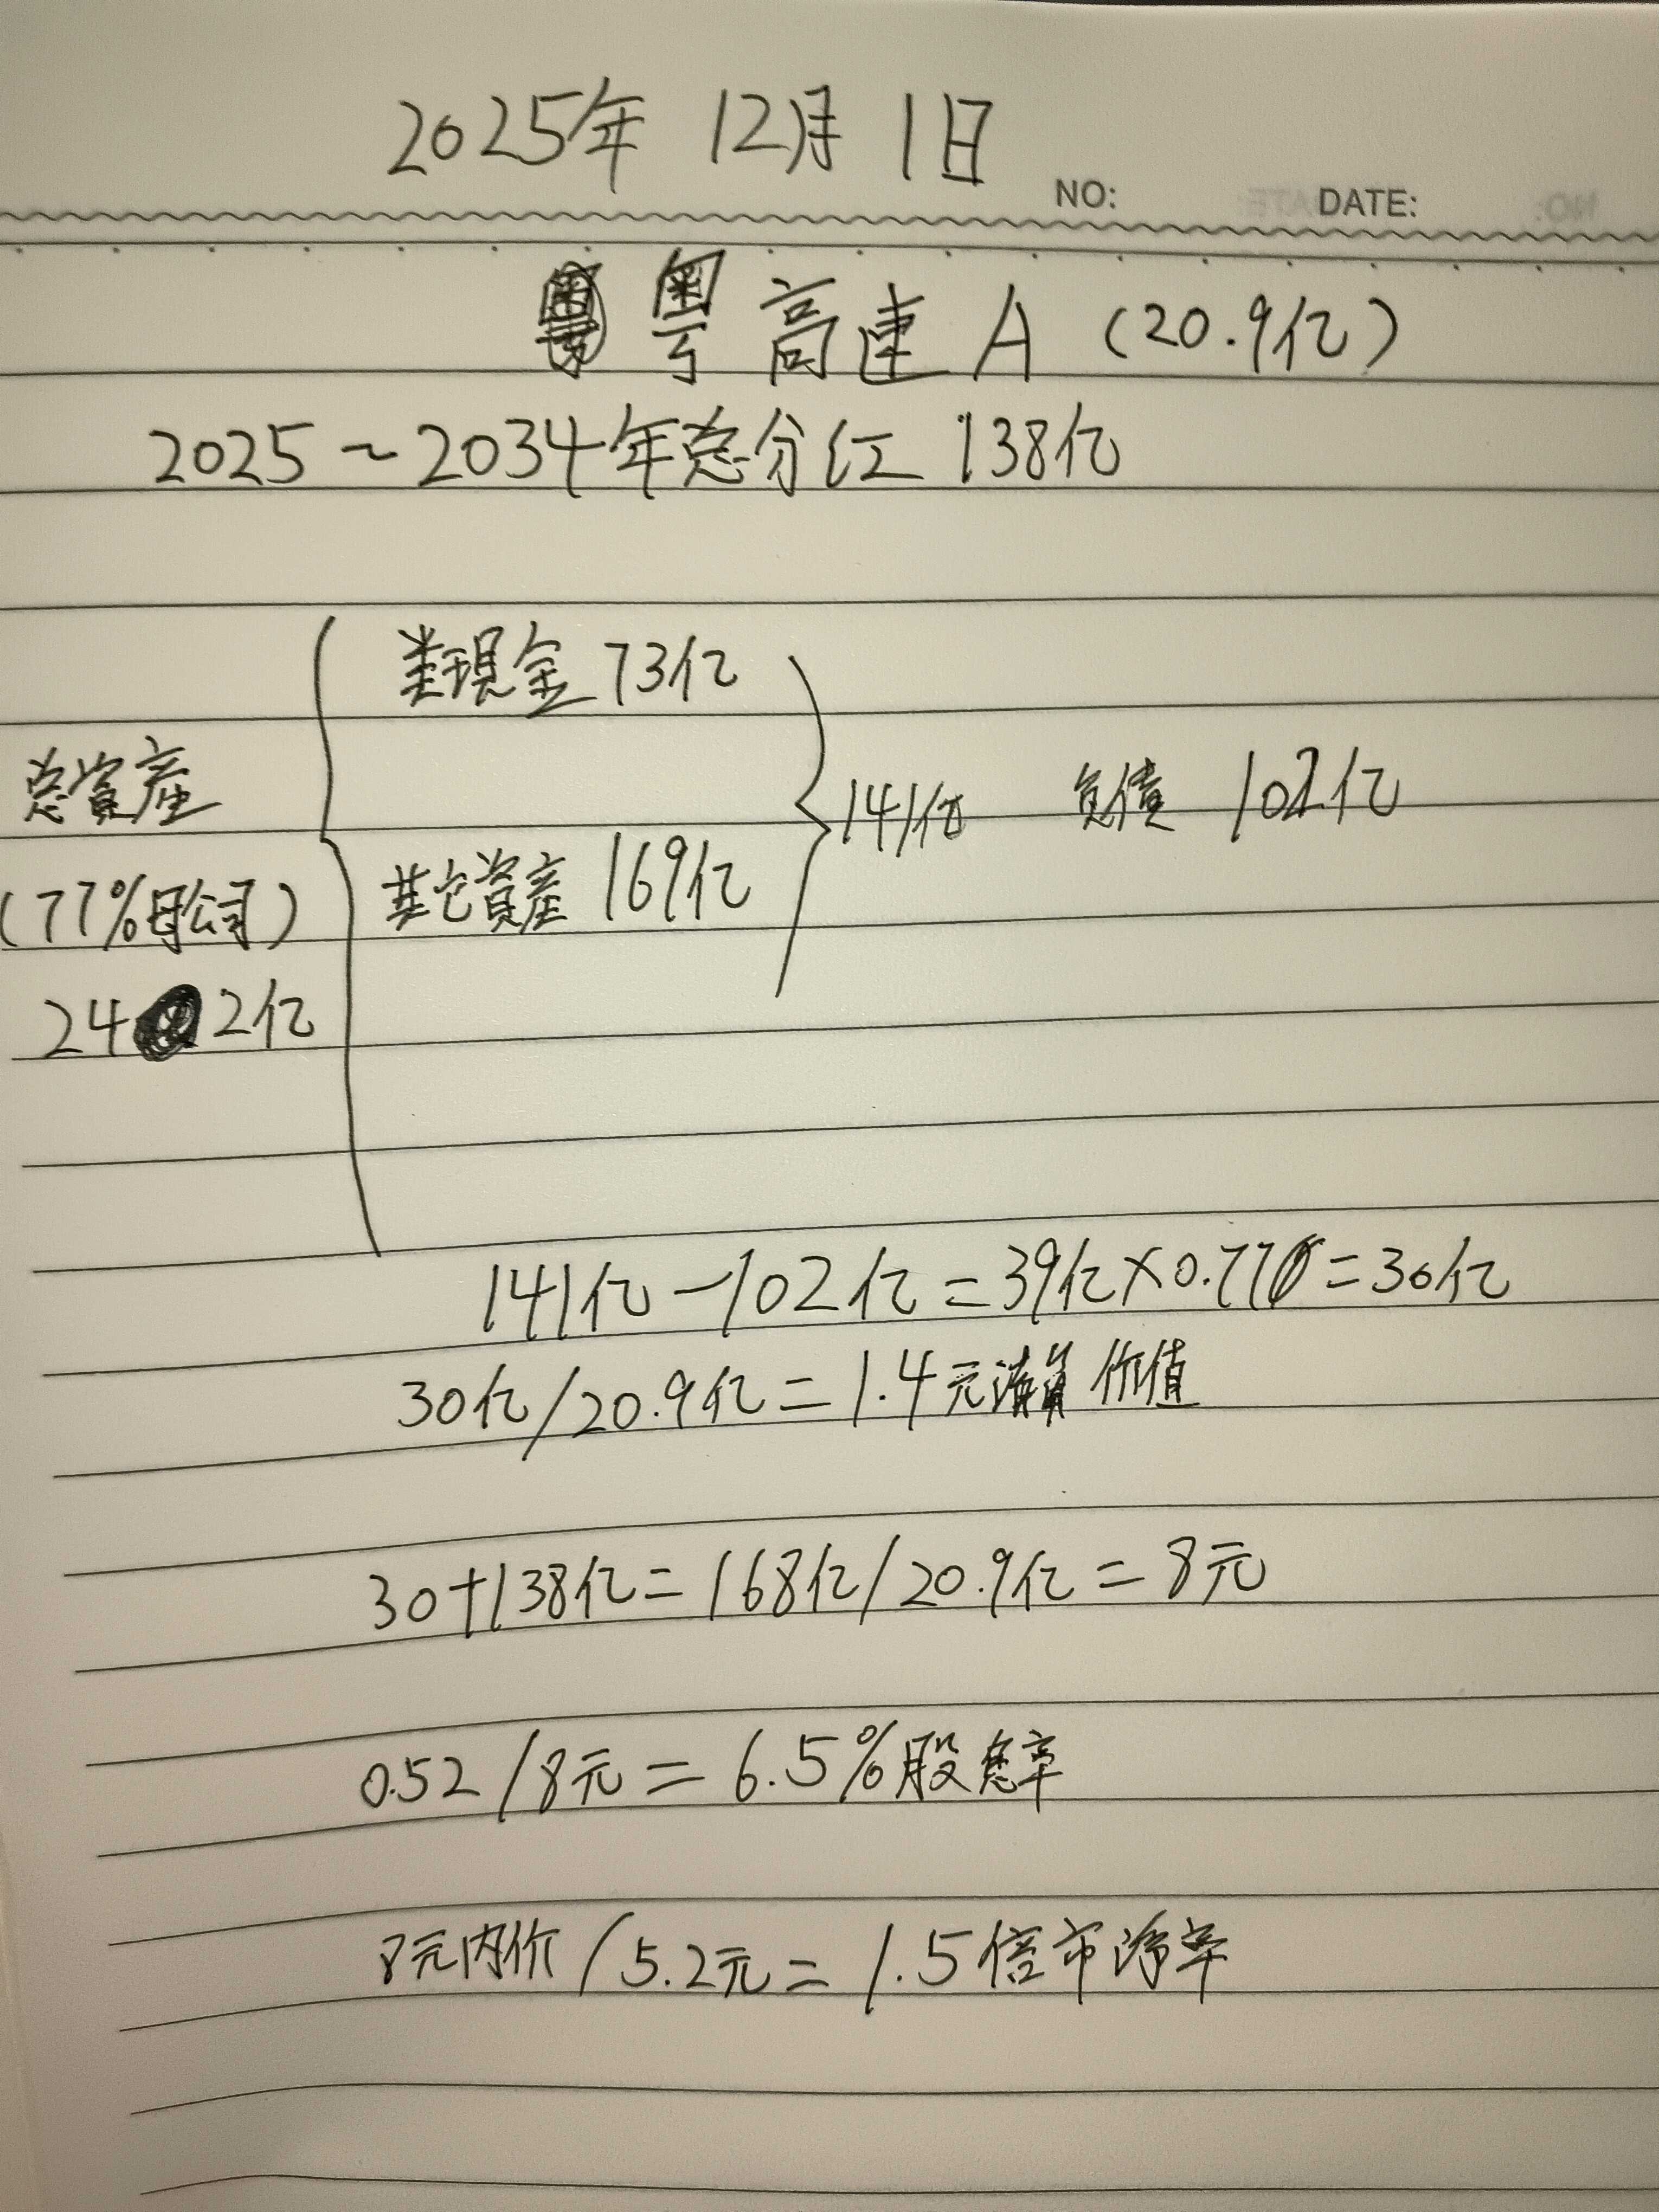 2025年 12月 1日
NO: DATE:
粤高速A(20.9亿)
2025~2034年总分红 138亿
类現金 73亿
总資産
141亿 负债 102亿
其它資産 169亿
(77%母公司)
242亿
141亿-102亿=39亿×0.77=30亿
30亿/20.9亿=1.4元清算价值
30+138亿=168亿/20.9亿=8元
0.52/8元=6.5%股息率
8元内价/5.2元=1.5倍市净率